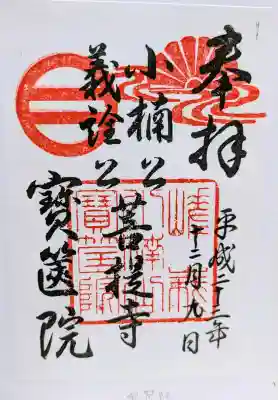 奉拝
平成二十三年
十二月九日
小楠公
義詮公
菩提寺
寶筐院